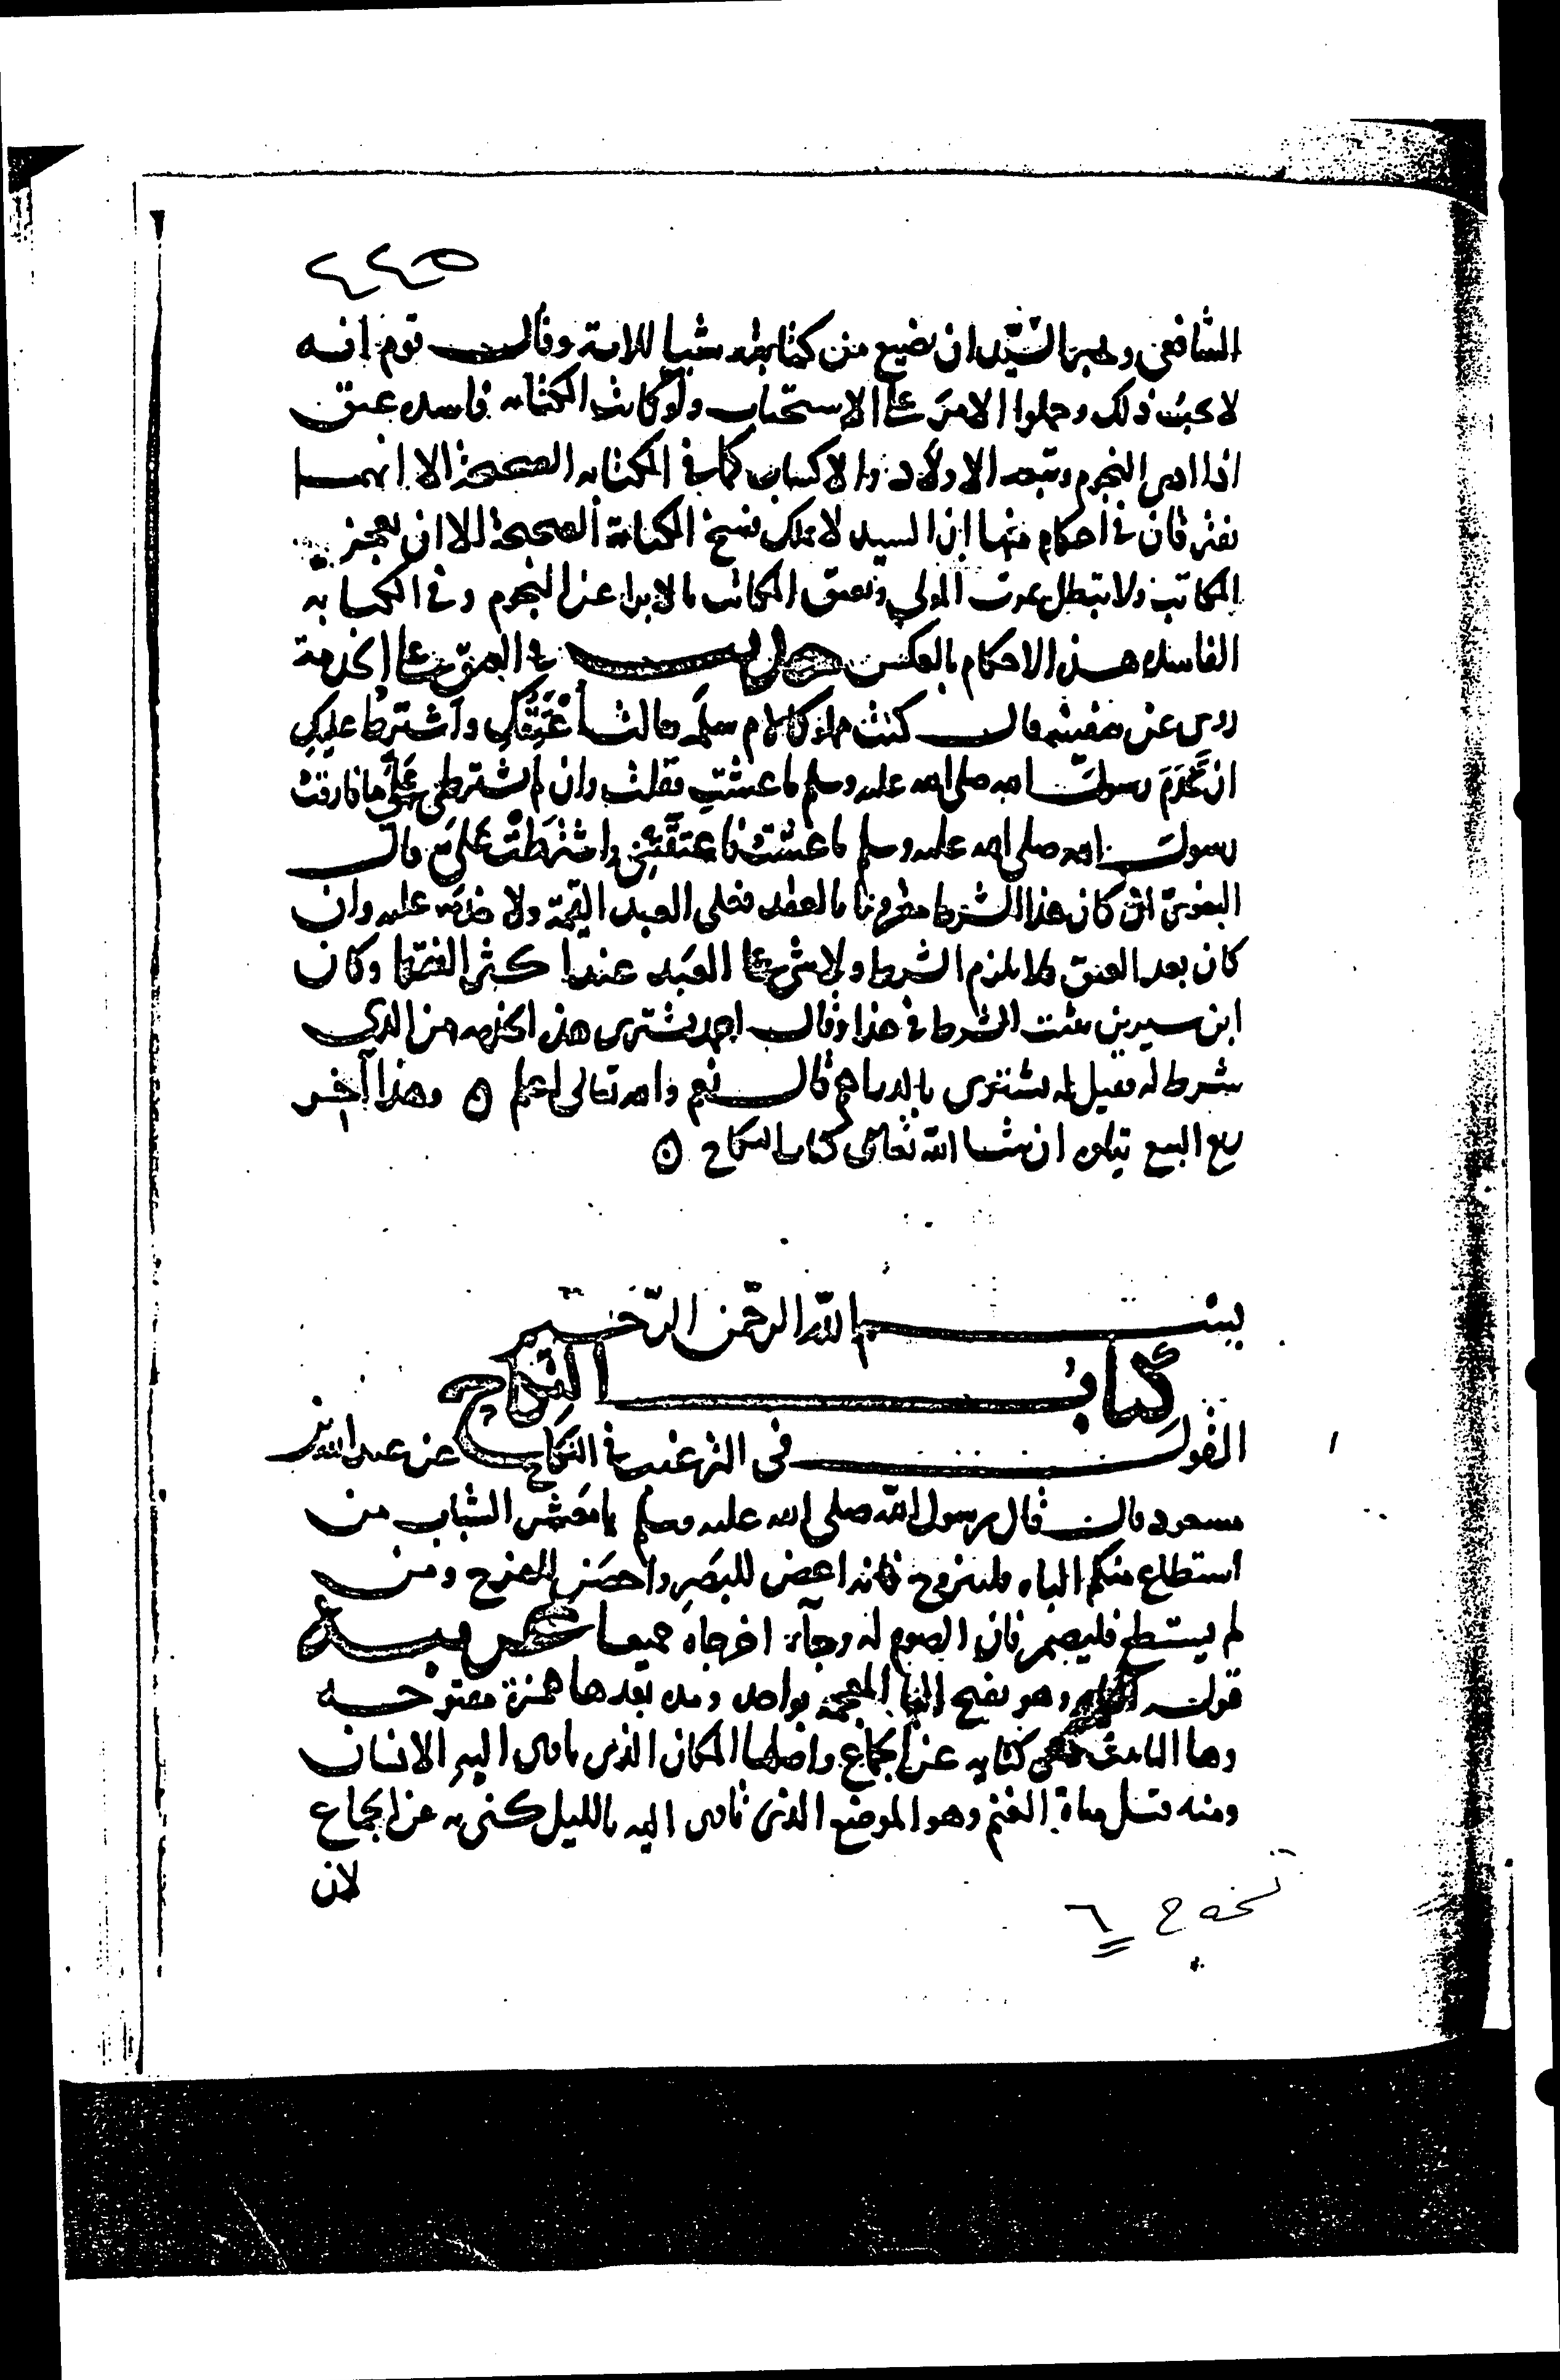 ٢٢٥
الشافعي ويجبر السيد ان يضع من كتابته شيا للاية وقال قوم انه
لا يجب ذلك وحملوا الامر على الاستحباب ولو كانت الكتابه فاسده عتق
اذا ادى النجوم وتبعه الاولاد والاكساب كما في الكتابه الصحيحة الا انهما
يفترقان في احكام منها ان السيد لا يملك فسخ الكتابة الصحيحة الا ان يعجز
المكاتب ولا تبطل بموت المولى وتعتق المكاتب بالابرا عن النجوم وفي الكتابه
الفاسده هذه الاحكام بالعكس في العتق على الخدمة
روى عن سفينه قال كنت مملوكا لام سلمه فقالت أعتقك وأشترط عليك
ان تخدم رسول الله صلى الله عليه وسلم ما عشت فقلت وان لم تشترطي علي ما فارقت
رسول الله صلى الله عليه وسلم ما عشت فاعتقتني واشترطت علي قال
البغوي ان كان هذا الشرط مقرونا بالعقد فعلى العبد القيمة ولا خدمه عليه وان
كان بعد العتق فلا يلزم الشرط ولا شي على العبد عند اكثر الفقها وكان
ابن سيرين يثبت الشرط في هذا وقال احمد يشترى هذه الخدمه من الذي
شرط له فقيل له يشترى بالدراهم قال نعم والله تعالى اعلم ٥ وهذا آخر
ربع البيع يتلوه ان شا الله تعالى كتاب النكاح ٥
بسم الله الرحمن الرحيم
كتاب النكاح
القول في الترغيب في النكاح عن عبد الله بن
مسعود قال قال رسول الله صلى الله عليه وسلم يا معشر الشباب من
استطاع منكم الباه فليتزوج فانه اغض للبصر واحصن للفرج ومن
لم يستطع فليصم فان الصوم له وجآء اخرجاه جميعا غريبه
قوله وهو بفتح البا المعجمه بواحده ومده بعدها همزة مفتوحه
وها التانيث كنايه عن الجماع واصلها المكان الذي ياوى اليه الانسان
ومنه قيل مباة الغنم وهو الموضع الذي تاوى اليه بالليل كنى به عن الجماع
لان
نسخه ح ٦